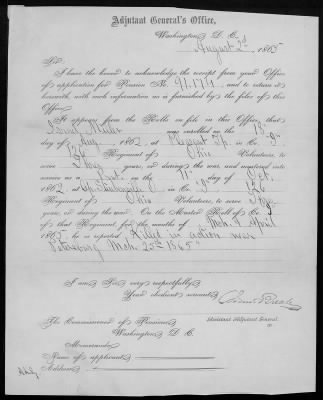 Adjutant General's Office,
Washington D. C.
August 2d 1865
Sir:
I have the honor to acknowledge the receipt from your Office
of application for Pension No. 91,174, and to return it
herewith, with such information as is furnished by the files of this
Office.
It appears from the Rolls on file in this Office, that
was enrolled on the 18"
day of Aug., 1862, at Tp. in Co. "G"
126 Regiment of Ohio Volunteers, to
serve 3 years, or during the war, and mustered into
service as a on the 11" day of Oct,
1862, at Cp. Steubenville O in Co. "G" 126
Regiment of Ohio Volunteers, to serve 3
years, or during the war. On the Muster Roll of Co. G
of that Regiment, for the months of Mch. & April
1865, he is reported "Killed in action near
Petersburg Mch. 25th 1865"
I am Sir, very respectfully,
Your obedient servant,
Assistant Adjutant General.
The Commissioner of Pensions
Washington D. C.
Memoranda:
Name of applicant
Address